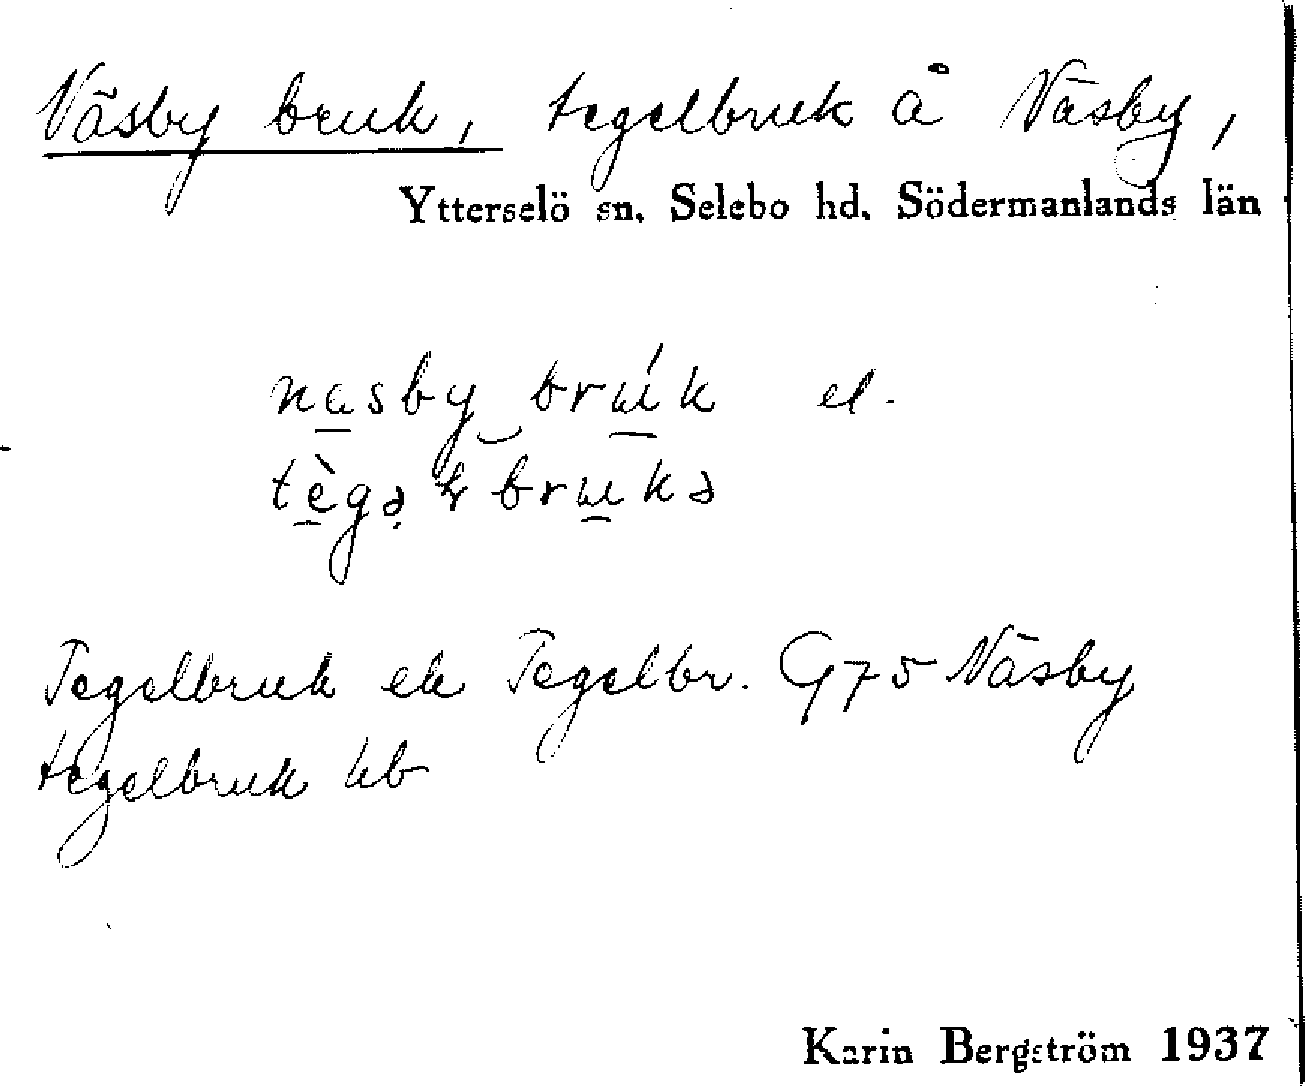 Näsby bruk, tegelbruk å Näsby,
Ytterselö sn. Selebo hd. Södermanlands län
nasby bruk el.
tègə bruks
Tegelbruk ek Tegelbr. G75 Näsby
tegelbruk hb
Karin Bergström 1937